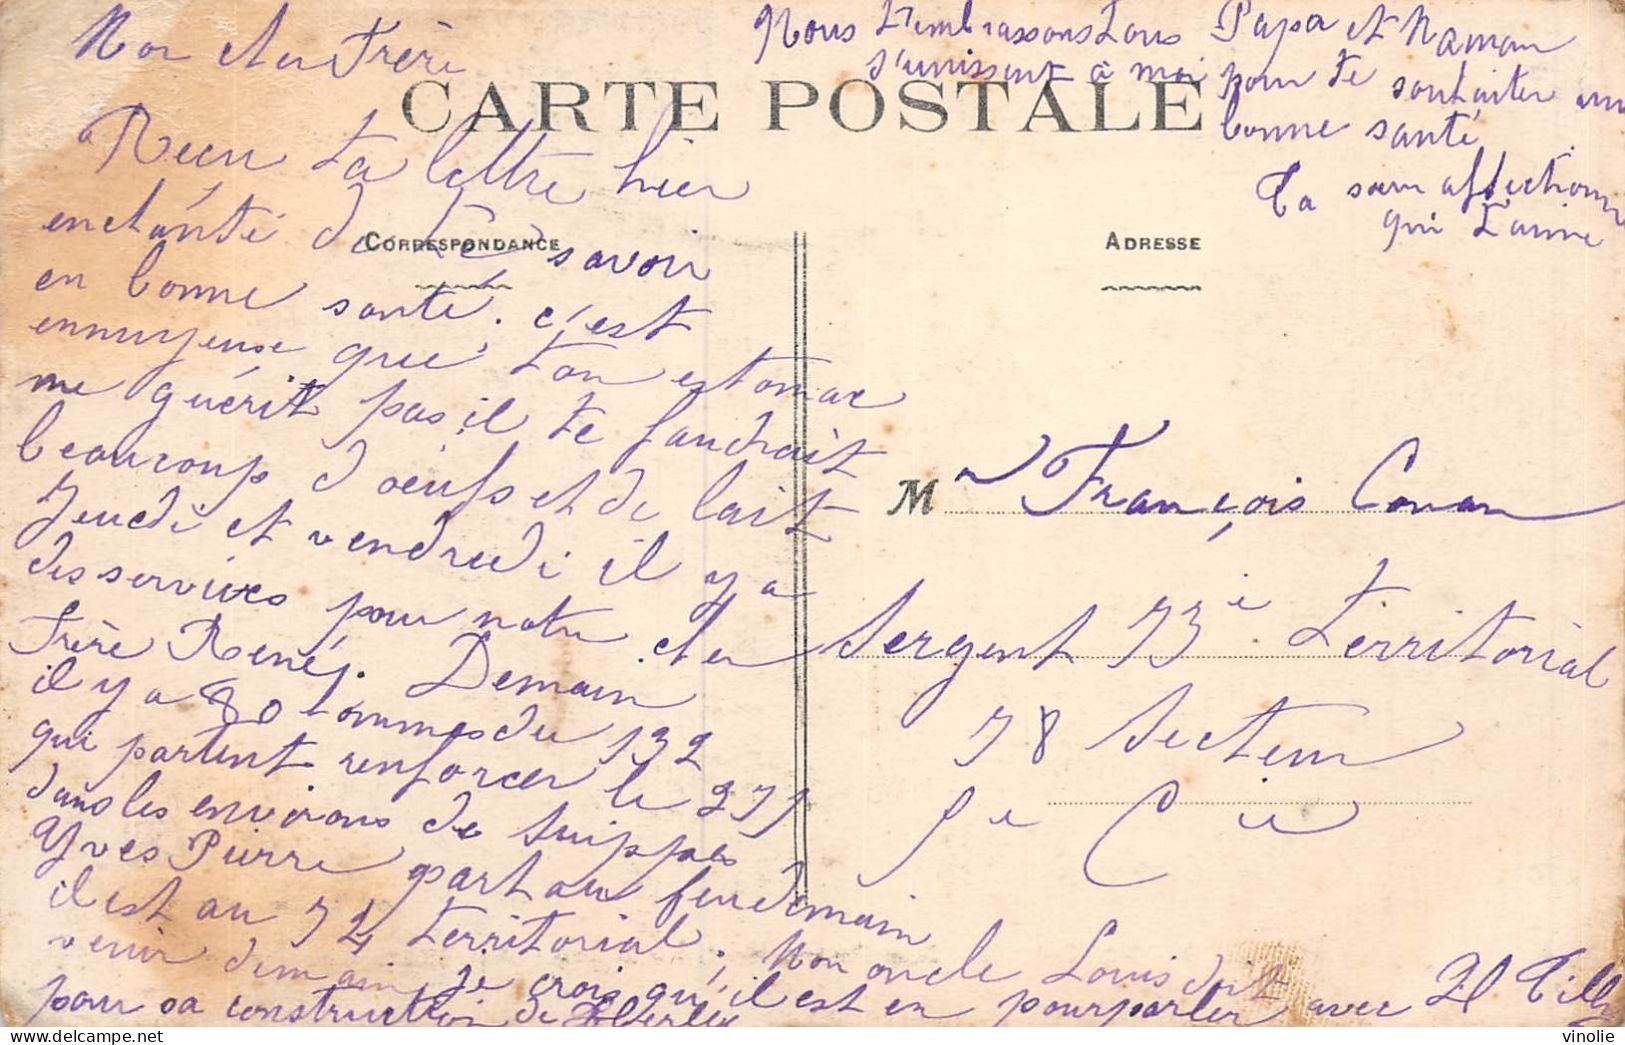 Mon cher Frère
Recu ta lettre hier
enchanté de te savoir
en bonne santé. c'est
ennuyeuse que ton estomac
ne guérit pas il te faudrait
beaucoup d'oeufs et de lait
Jeudi et vendredi il y a
des services pour notre cher
Frère René. Demain
il y a 80 hommes du 132
qui partent renforcer le 271
dans les environs de Suippes
Yves Pierre part au feu demain
il est au 74 territorial. Mon oncle Louis doit
venir demain je crois qu'il est en pourparler avec
pour sa construction de
Nous t'embrassons tous Papa et Maman
s'unissent à moi pour te souhaiter une
bonne santé
Ta soeur affectionnée
qui t'aime
CARTE POSTALE
CORRESPONDANCE
ADRESSE
Mr François Conan
Sergent 73e Territorial
78 Secteur
9e Cie
vinolie